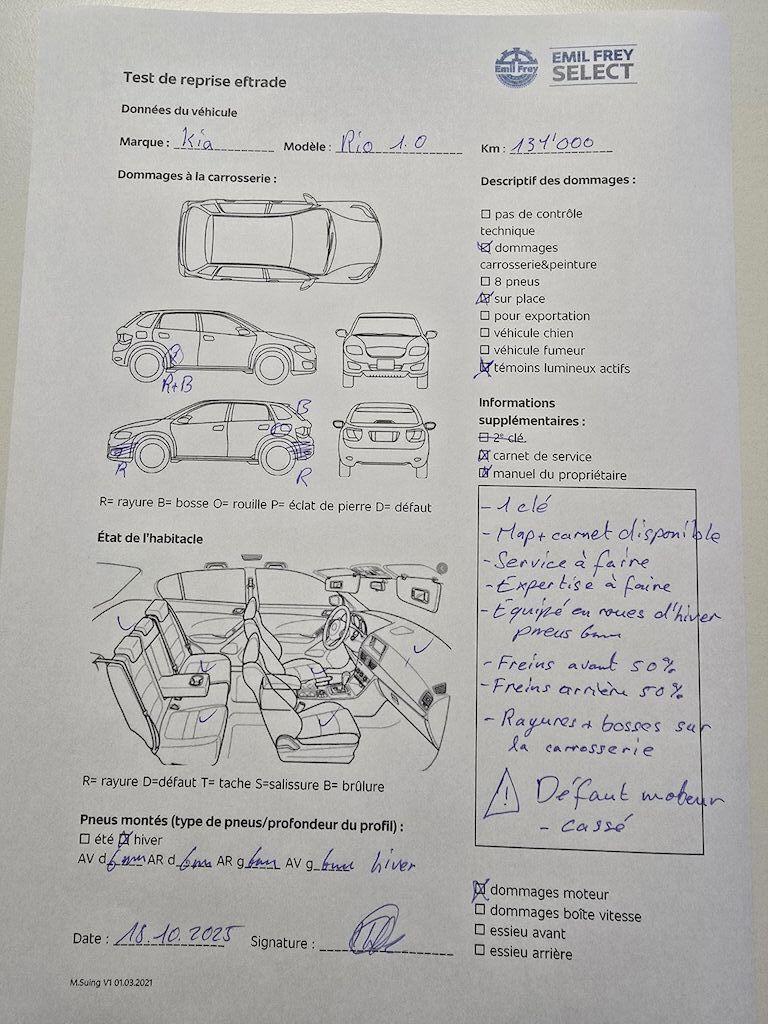 Emil Frey
EMIL FREY
SELECT
Test de reprise eftrade
Données du véhicule
Marque : Kia Modèle : Rio 1.0 Km : 134'000
Dommages à la carrosserie :
R+B
B
R
R
R= rayure B= bosse O= rouille P= éclat de pierre D= défaut
État de l'habitacle
R= rayure D=défaut T= tache S=salissure B= brûlure
Pneus montés (type de pneus/profondeur du profil) :
☐ été ☒ hiver
AV d 6mm AR d 6mm AR g 6mm AV g 6mm hiver
Date : 18.10.2025 Signature :
M.Suing V1 01.03.2021
Descriptif des dommages :
☐ pas de contrôle
technique
☒ dommages
carrosserie&peinture
☐ 8 pneus
☒ sur place
☐ pour exportation
☐ véhicule chien
☐ véhicule fumeur
☒ témoins lumineux actifs
Informations
supplémentaires :
☐ 2ᵉ clé.
☒ carnet de service
☒ manuel du propriétaire
- 1 clé
- Map + carnet disponible
- Service à faire
- Expertise à faire
- Equipé en roues d'hiver
pneus 6mm
- Freins avant 50%
- Freins arrière 50%
- Rayures + bosses sur
la carrosserie
! Défaut moteur
- cassé
☒ dommages moteur
☐ dommages boîte vitesse
☐ essieu avant
☐ essieu arrière